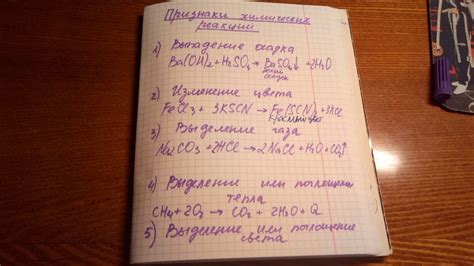 Признаки химические
реакции
1) Выпадение осадка
Ba(OH)₂ + H₂SO₄ → BaSO₄↓ + 2H₂O
белый
осадок
2) Изменение цвета
FeCl₃ + 3KSCN → Fe(SCN)₃ + 3KCl
красный цвет
3) Выделение газа
Na₂CO₃ + 2HCl → 2NaCl + H₂O + CO₂↑
4) Выделение или поглощение
тепла
CH₄ + 2O₂ → CO₂ + 2H₂O + Q
5) Выделение или поглощение
света